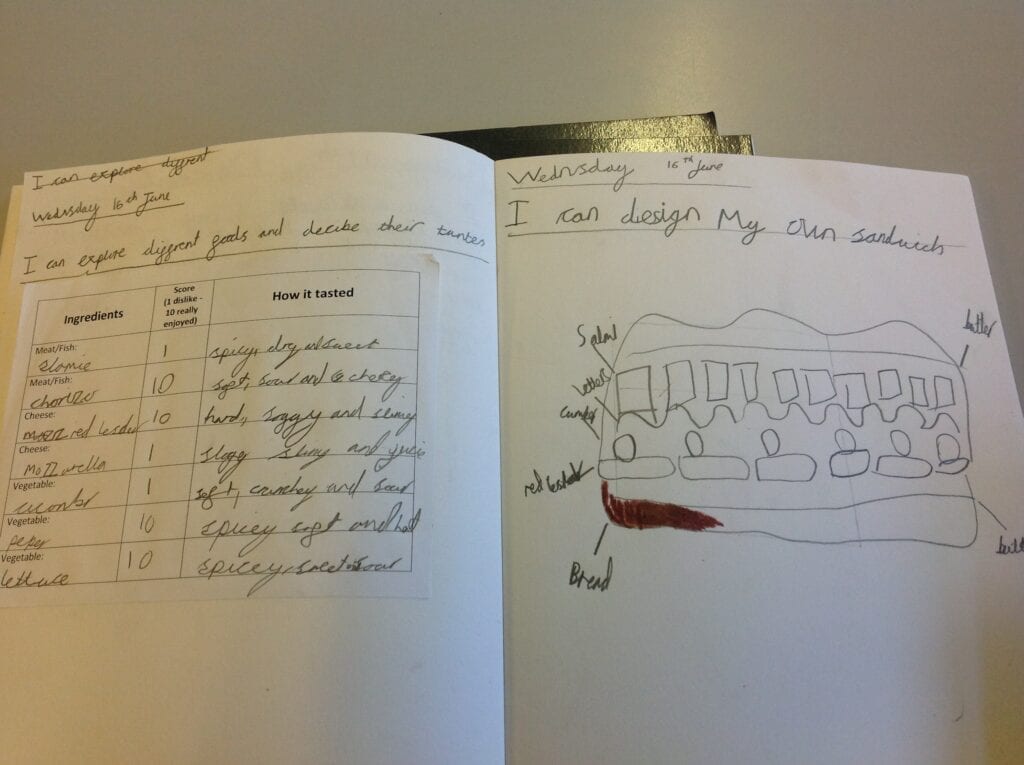 I can explore diffrent
Wednsday 16th June
I can explore diffrent foods and decibe their tastes
Ingredients
Score
(1 dislike -
10 really
enjoyed)
How it tasted
Meat/Fish:
slamie
1
spicy, dry, sweet
Meat/Fish:
chorizo
10
soft, sour and chewy
Cheese:
red lesder
10
hard, soggy and slimy
Cheese:
Mozzarella
1
slimy and
Vegetable:
1
soft, crunchey and sour
Vegetable:
peper
10
spicey soft and
Vegetable:
lettuce
10
spicey, sweet sour
Wednsday 16TH June
I can design My own sandwich
butter
red
Bread